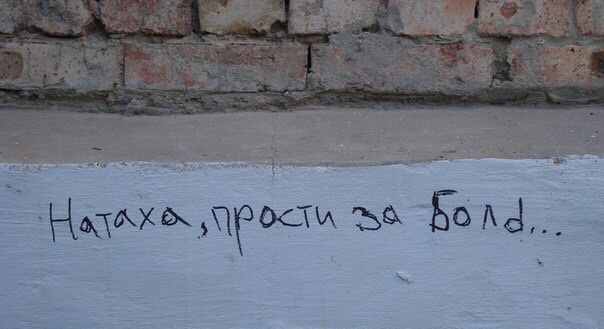 Натаха, прости за Болд...